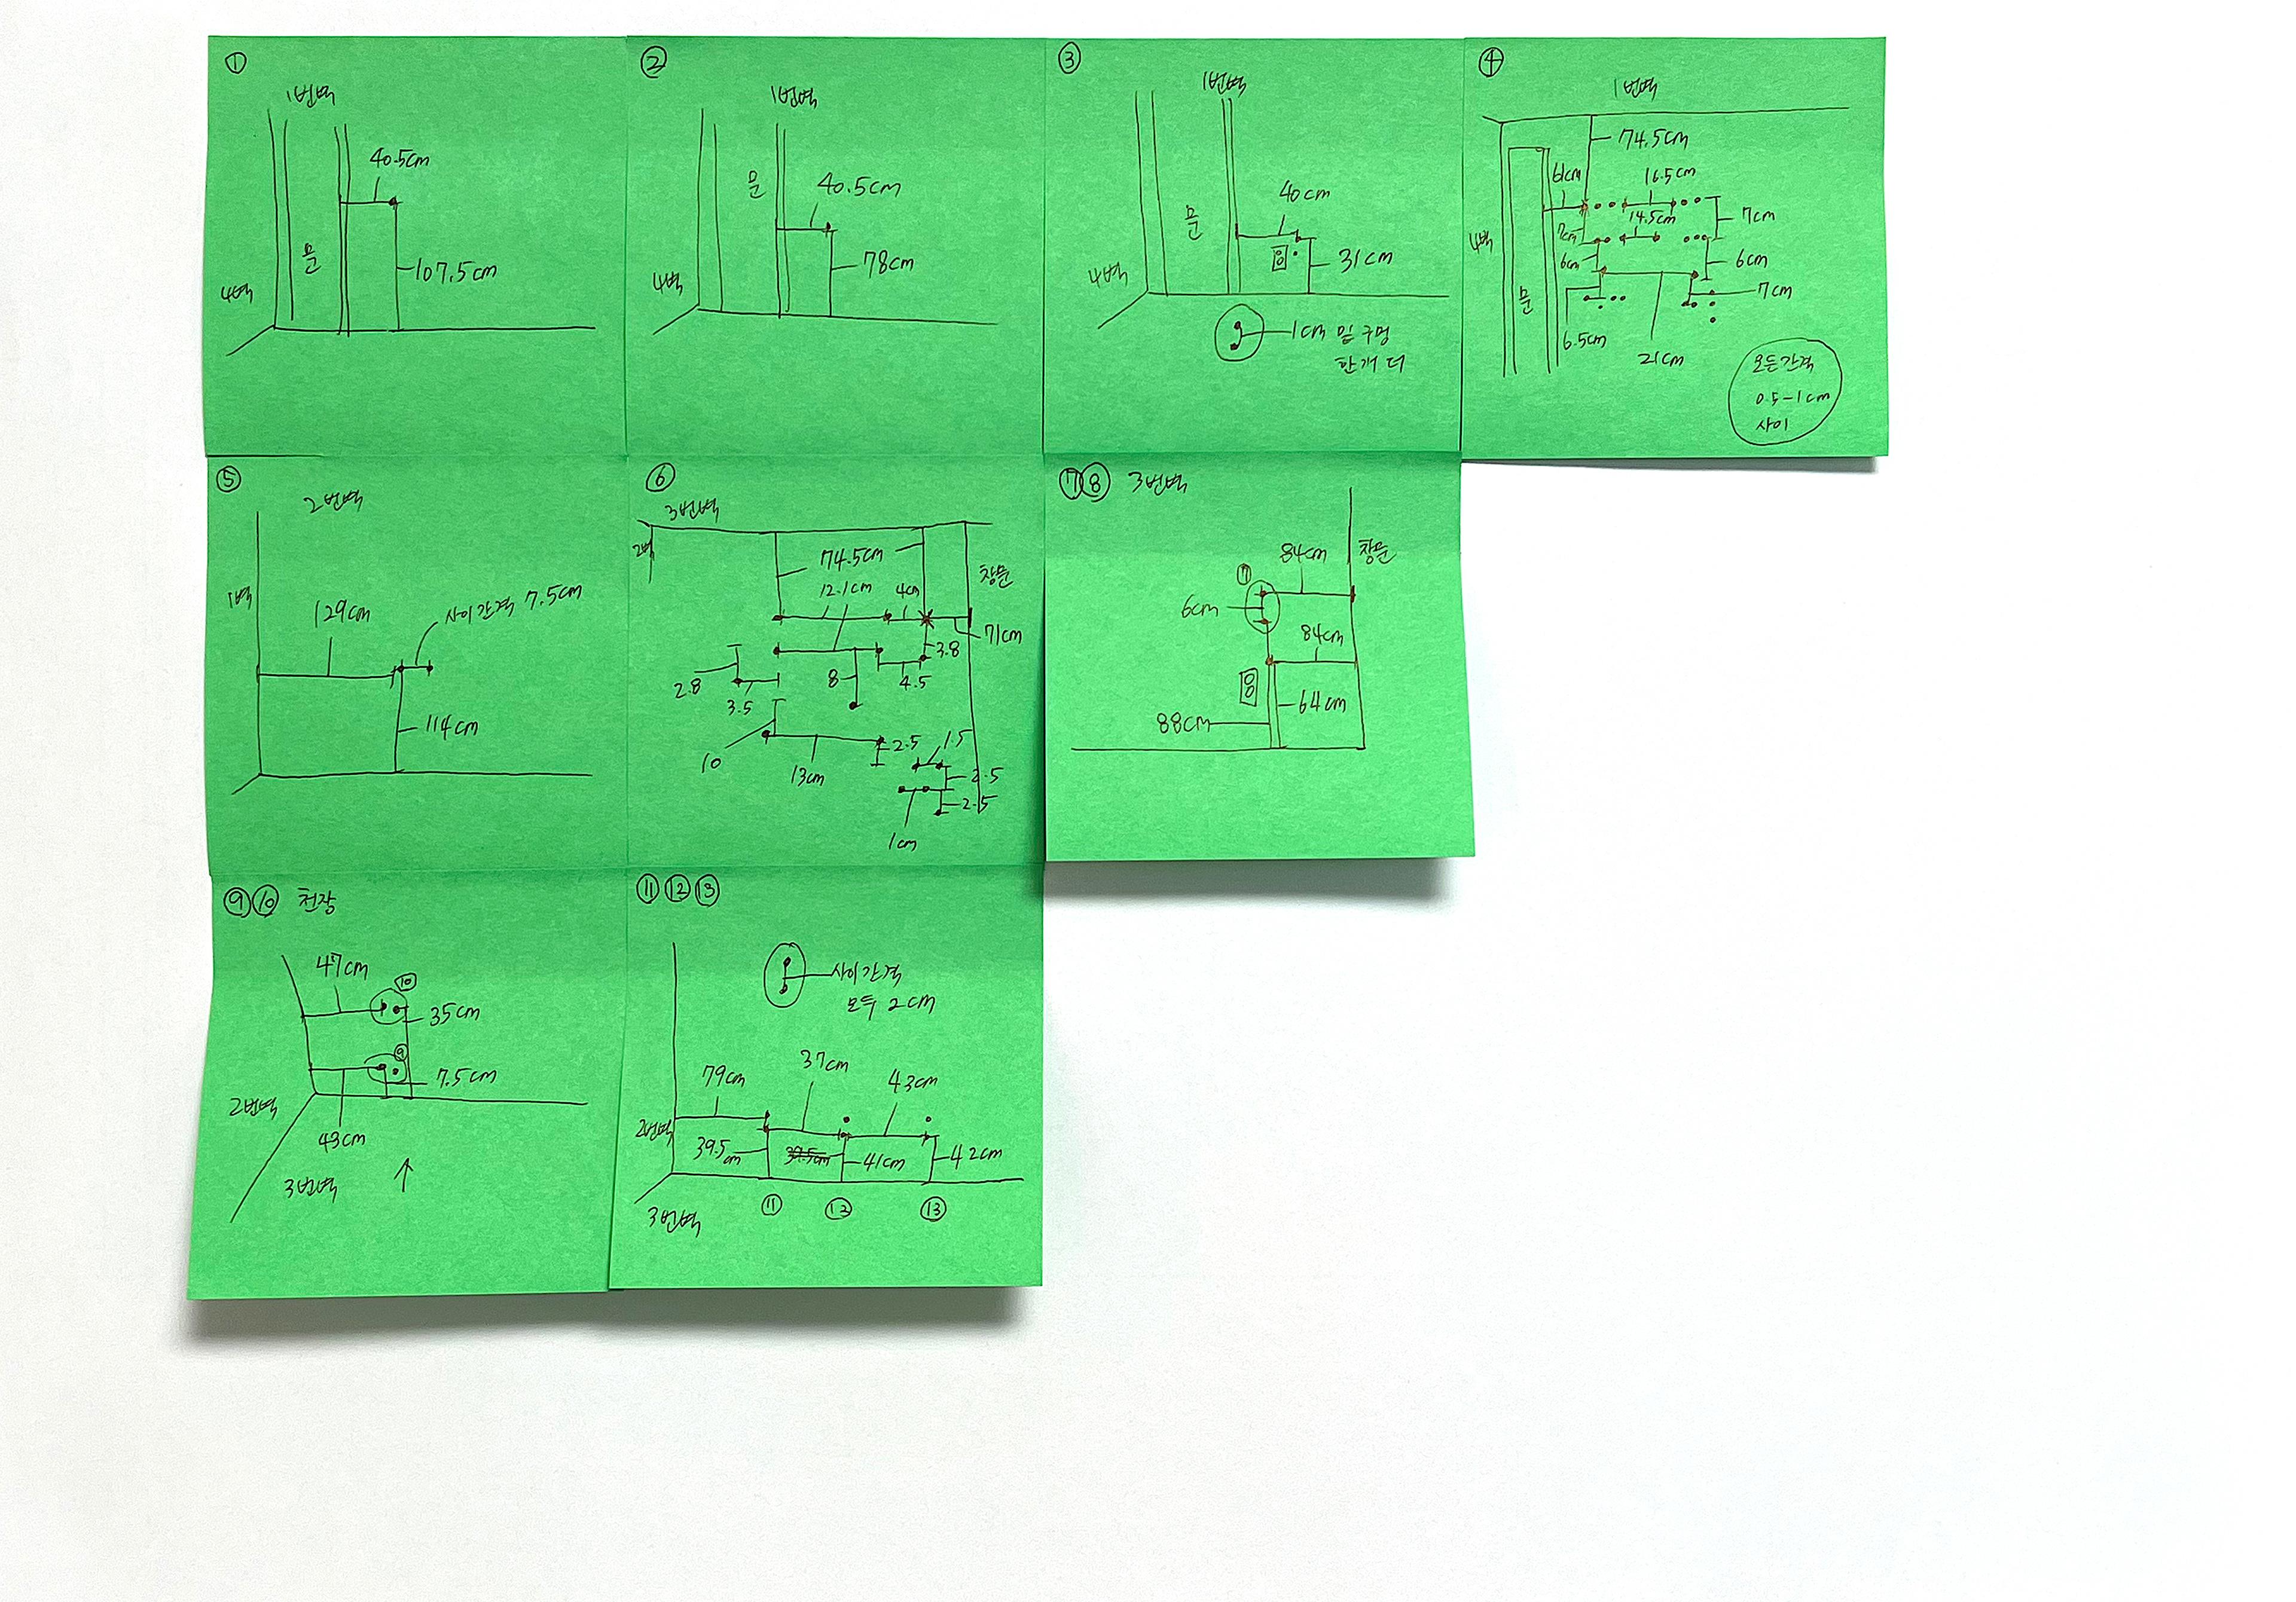 ①
1번벽
40.5cm
문
107.5cm
4벽
②
1번벽
문
40.5cm
78cm
4벽
③
1번벽
문
40cm
31cm
4벽
1cm 밑 구멍
한개 더
④
1번벽
74.5cm
61cm
16.5cm
14.5cm
7cm
7cm
4벽
6cm
6cm
문
7cm
6.5cm
21cm
모든간격
0.5-1cm
사이
⑤
2번벽
1벽
129cm
사이간격 7.5cm
114cm
⑥
3번벽
2벽
74.5cm
창문
12.1cm
4cm
71cm
3.8
2.8
8
4.5
3.5
10
13cm
2.5
1.5
2.5
2.5
1cm
⑦⑧ 3번벽
84cm
창문
⑦
6cm
84cm
64cm
88cm
⑨⑩ 천장
47cm
⑩
35cm
⑨
7.5cm
2번벽
43cm
3번벽
⑪⑫⑬
사이간격
모두 2cm
79cm
37cm
43cm
2번벽
39.5cm
39.5cm
41cm
42cm
⑪
⑫
⑬
3번벽